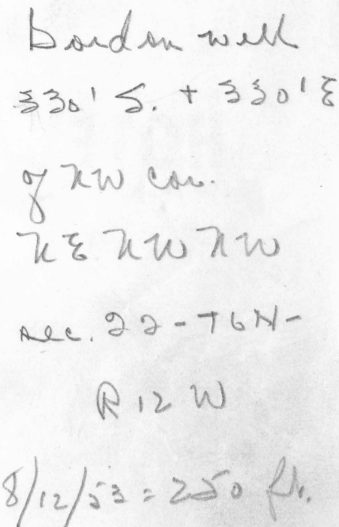 well
330' S. + 330' E
of NW cor.
NE NW NW
sec. 22 - T6N -
R 12 W
8/12/53 = 250 ft.